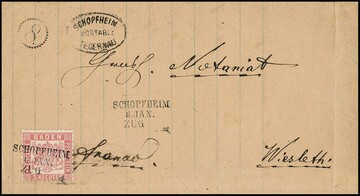 8
SCHOPFHEIM
POSTABL.
TEGERNAU
Notariat
SCHOPFHEIM
8. JAN.
ZUG
BADEN
SCHOPFHEIM
8. JAN.
ZUG
franco
Wiesleth.